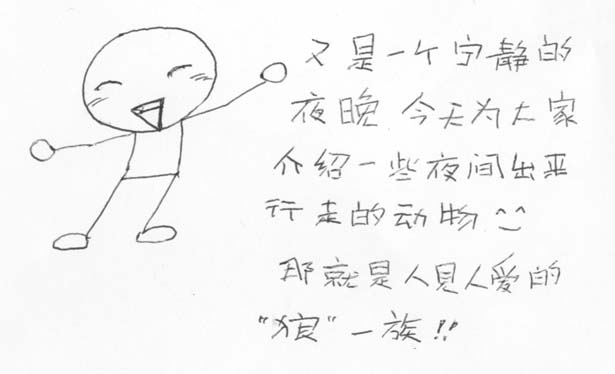 又是一个宁静的
夜晚 今天为大家
介绍一些夜间出来
行走的动物^^
那就是人见人爱的
“狼”一族!!